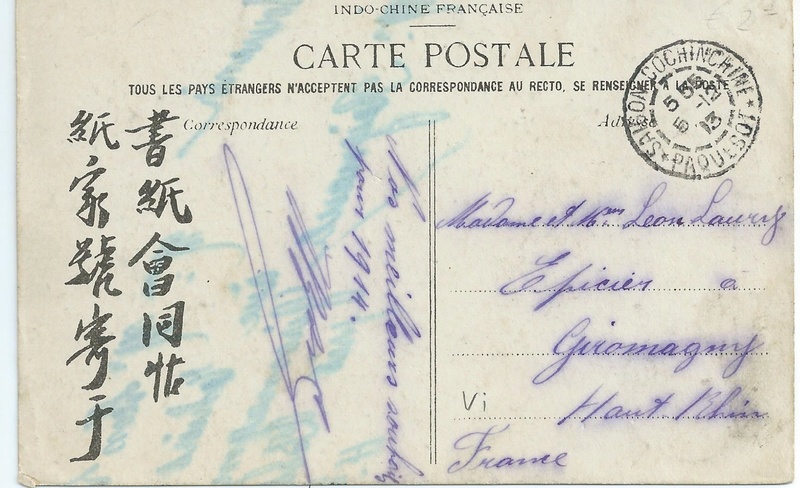 INDO-CHINE FRANÇAISE
CARTE POSTALE
TOUS LES PAYS ÉTRANGERS N'ACCEPTENT PAS LA CORRESPONDANCE AU RECTO, SE RENSEIGNER A LA POSTE
Correspondance
Adresse
SAIGON-COCHINCHINE
PAQUEBOT
13
書紙會同怙
紙家號寄于
Nos meilleurs souhaits
pour 1914.
Madame et Leon Laury
Epicier à
Giromagny
Haut Rhin
France
Vi